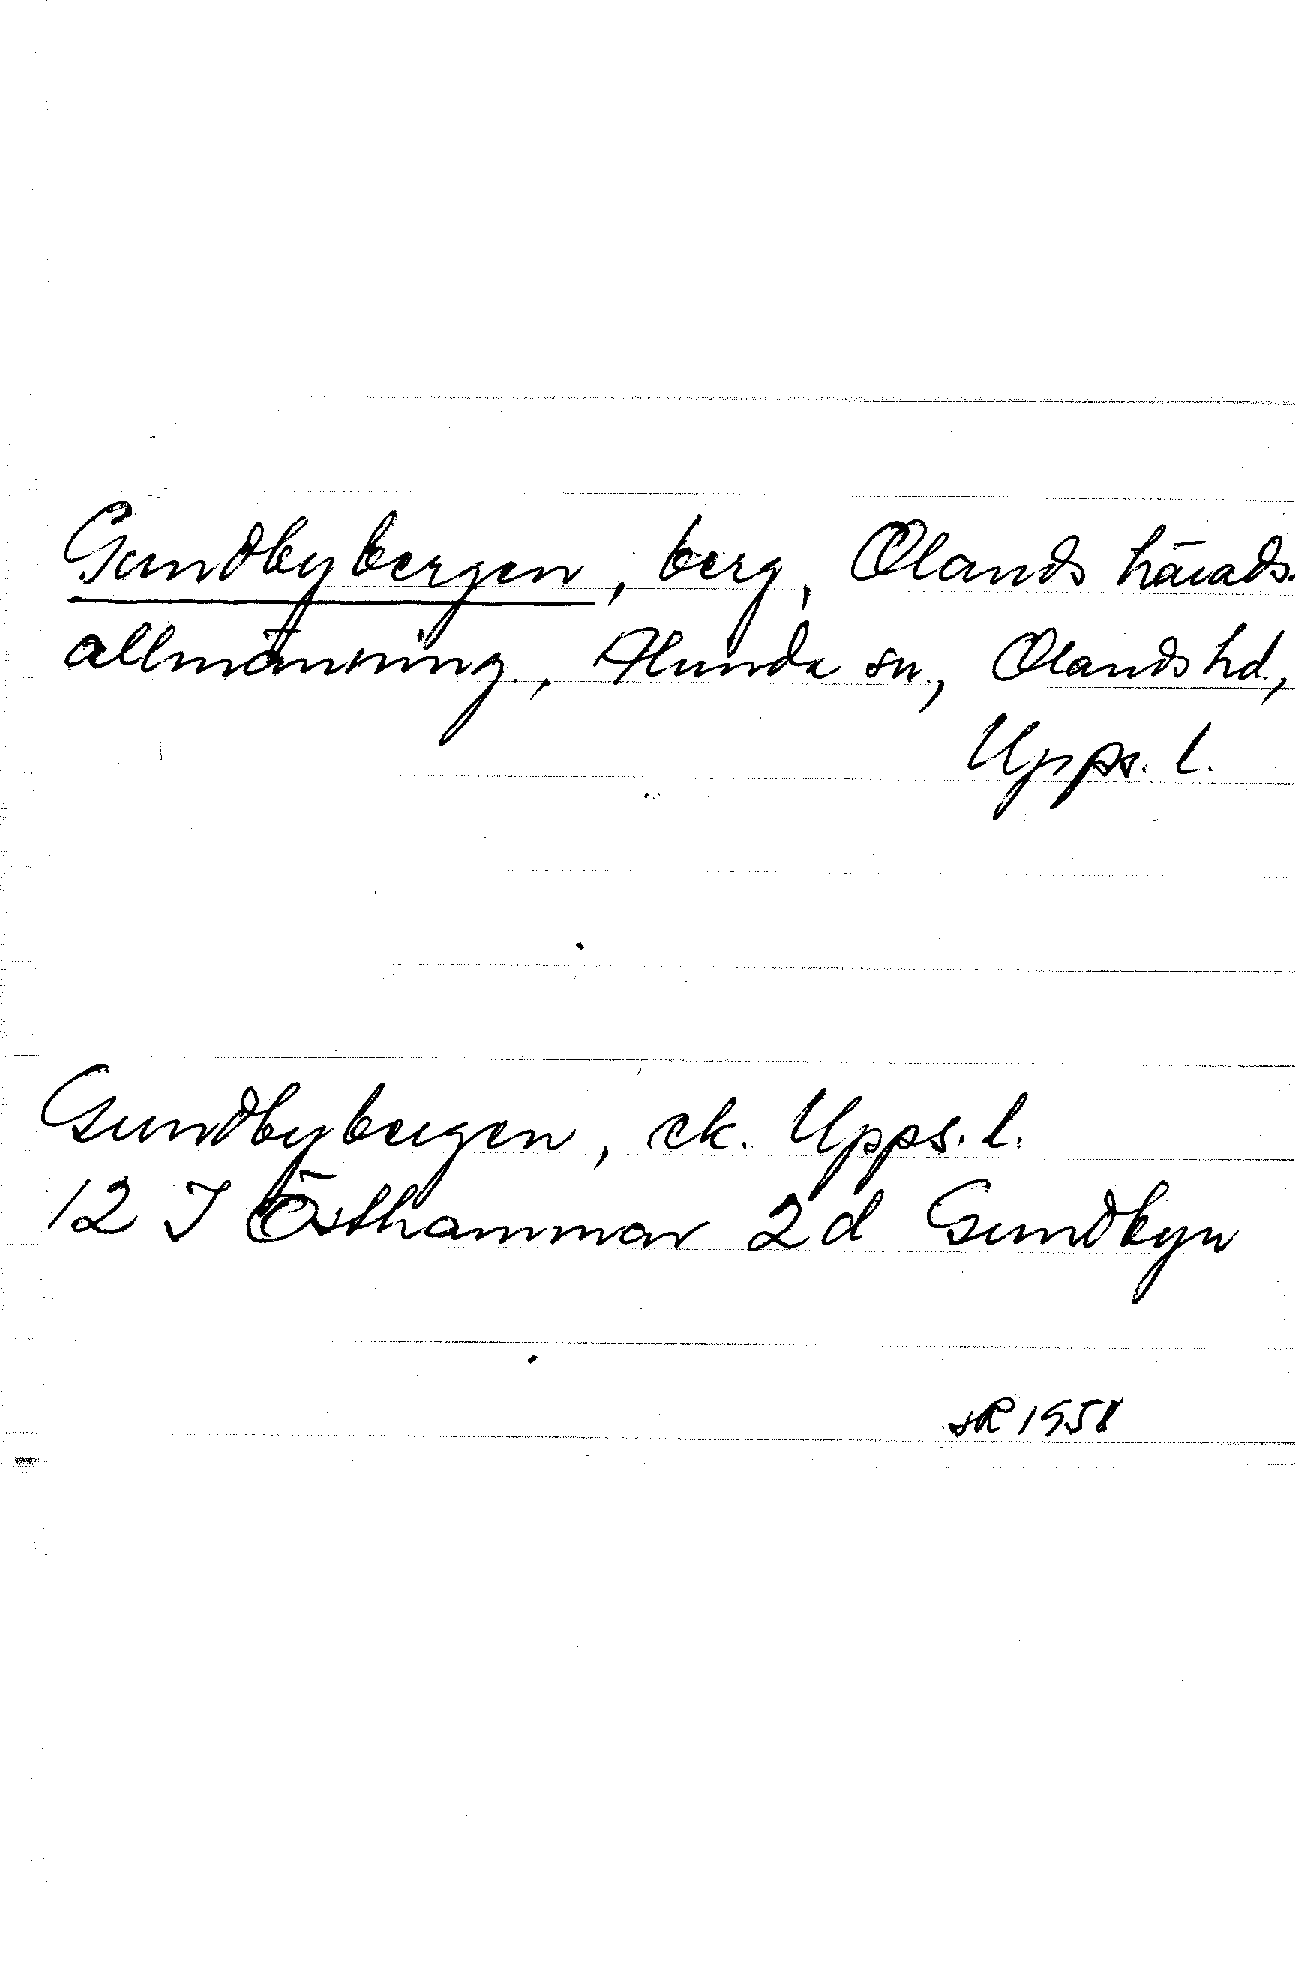 Gundbybergen, berg, Olands härads-
allmänning, Alunda sn., Olands hd.,
Upps. l.
Gundbybergen, ek. Upps. l.
12 I Östhammar 2d Gundbyn
SR 1958